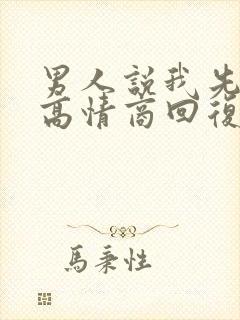 男人說我先
高情商回復
馬秉性